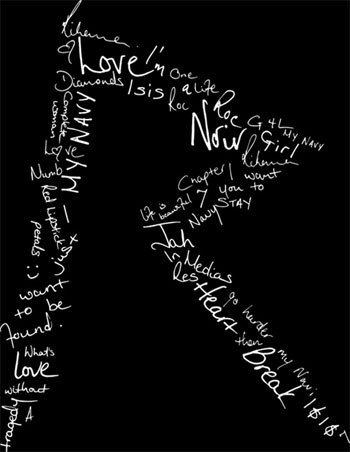 Rihanna
Love
I'm
One
Diamonds
Isis
a
Life
Roc
Roc
G4L
MY NAVY
Noir
Girl
Rihanna
Complete
woman
MY NAVY
Love
Numb
Red Lipstick
petals
:)
I just
want
to be
found.
What's
Love
without
tragedy
A
Chapter
I want
7
you to
STAY
Life is
beautiful
Navy
Jah
In Medias
Res
Heart
go harder
then
my Navi
Break